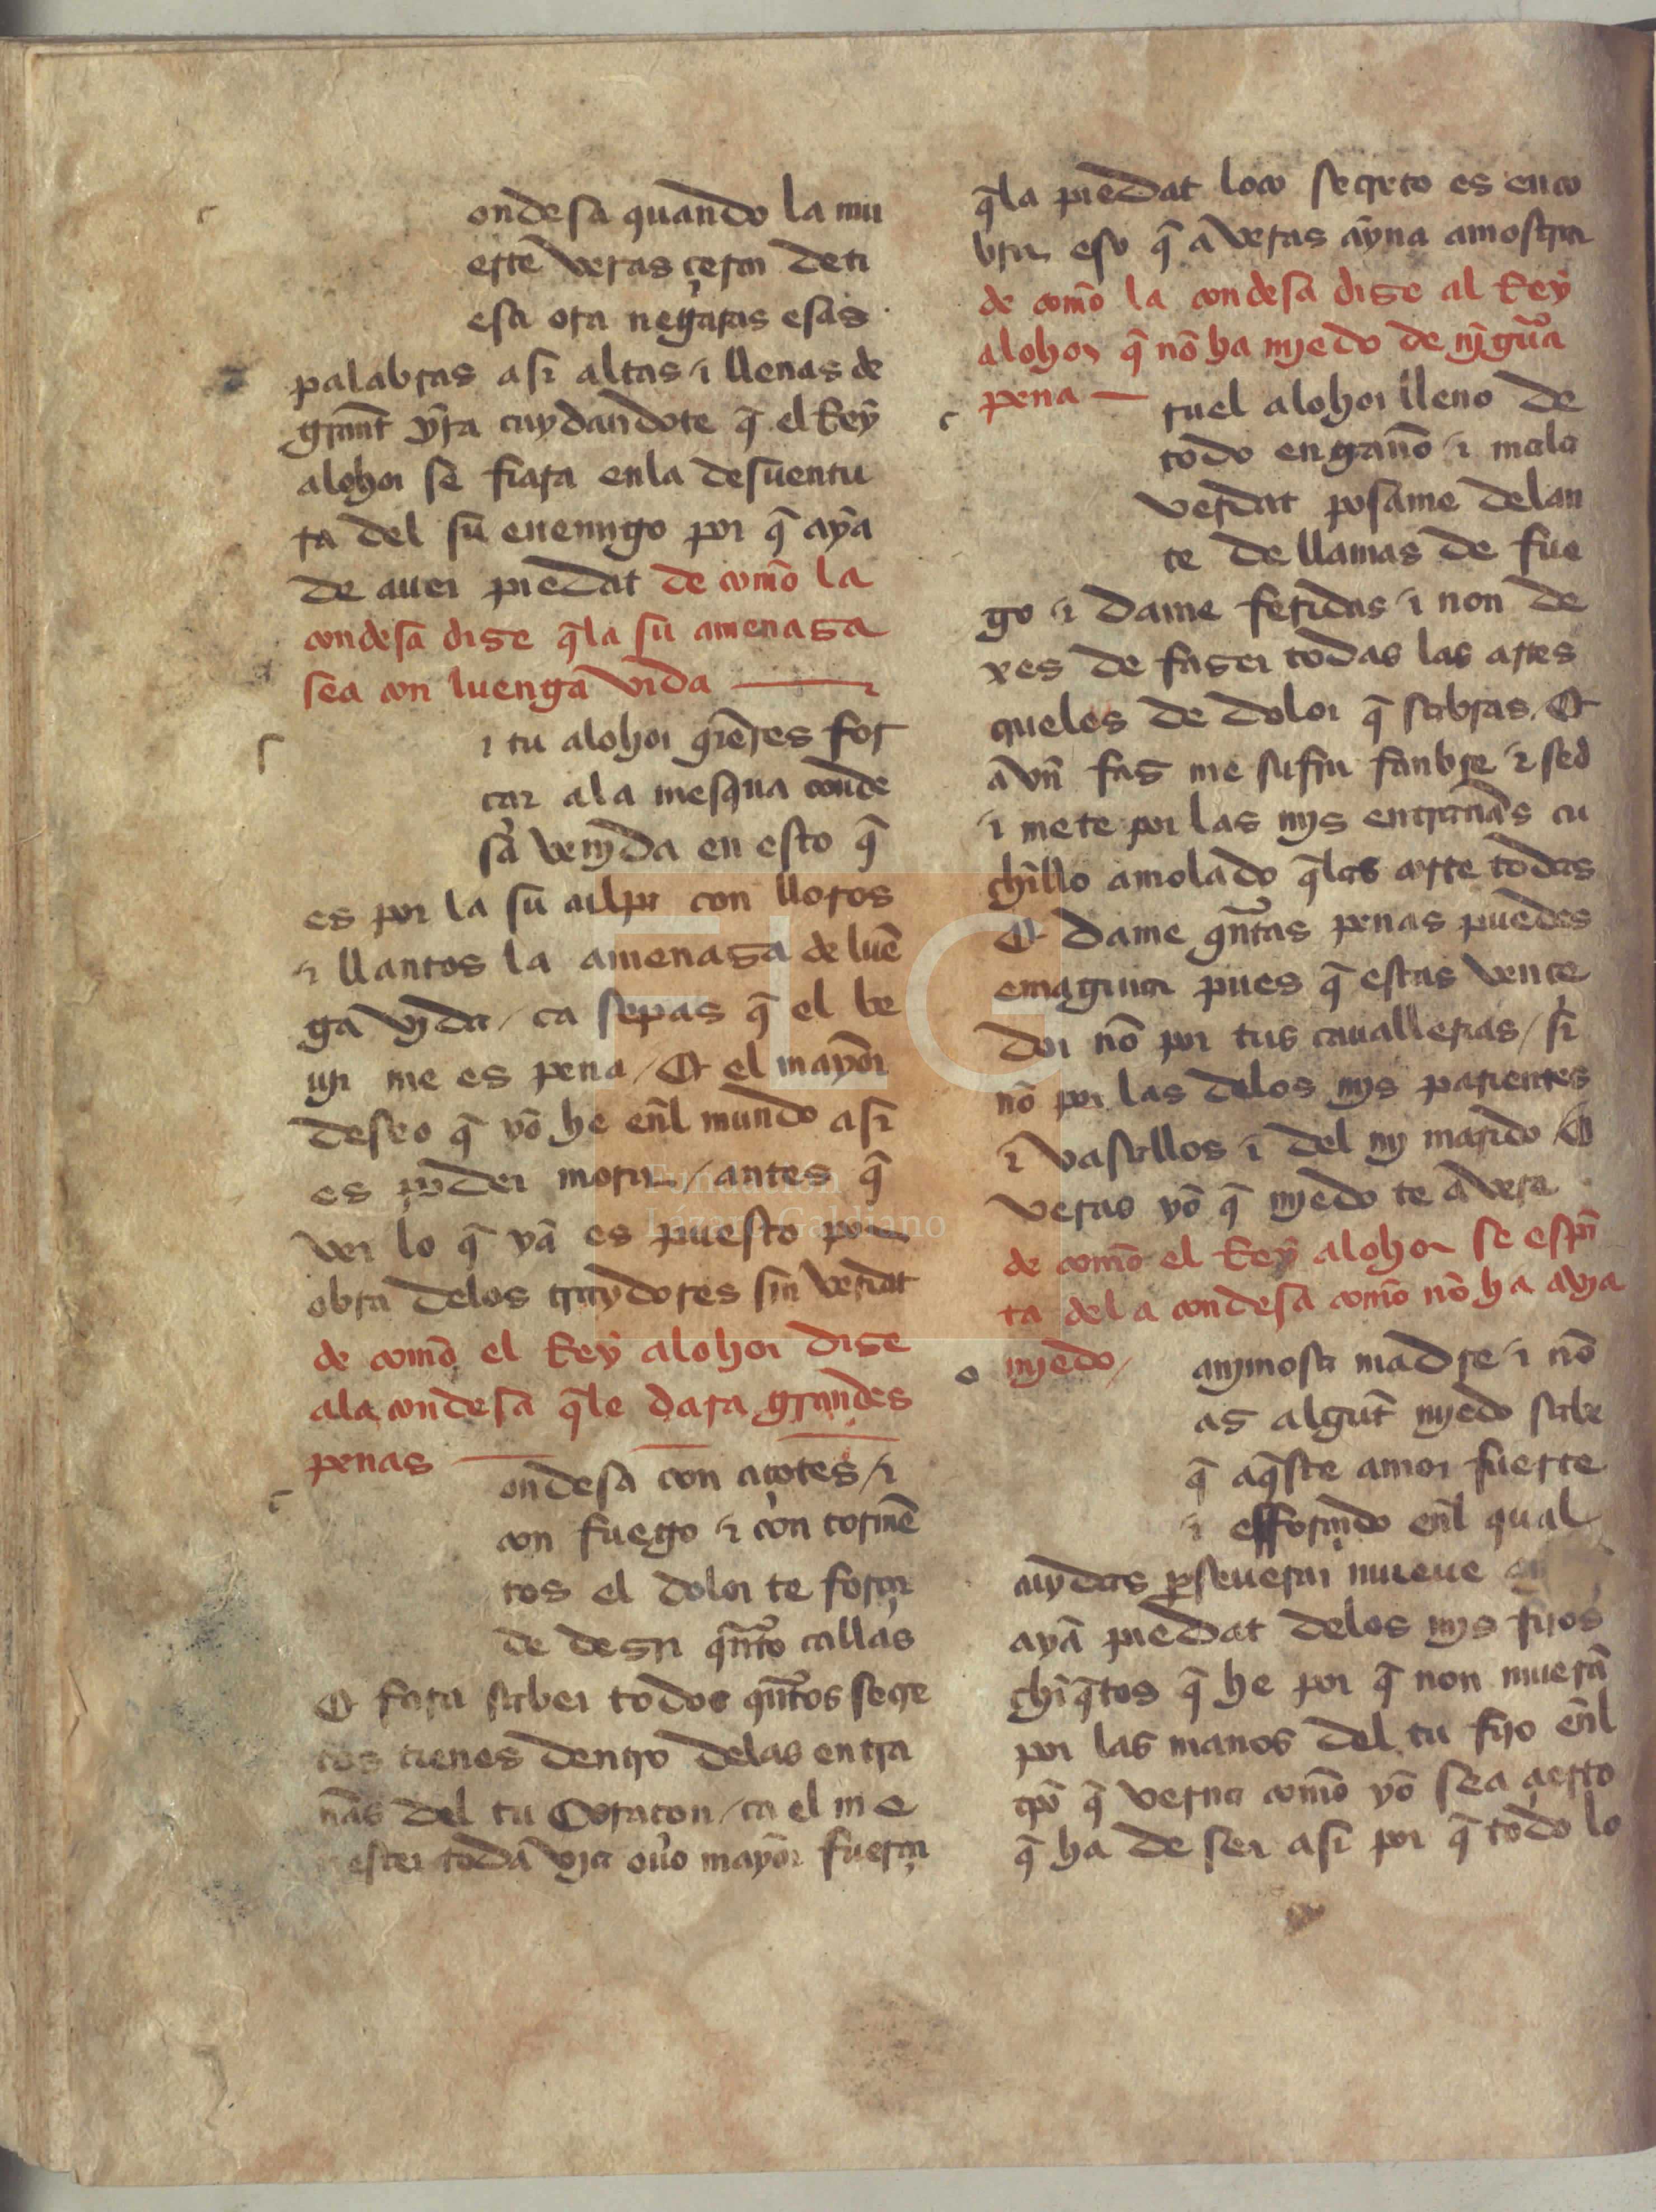 c
ondesa quando la mu
erte veras çerca de ti
esa ora negaras esas
palabras asi altas i llenas de
grant yra cuydandote q̃ el Rey
alohor se fiara en la desuentu
ra del su enemigo por q̃ aya
de auer piedat de como la
condesa dise q̃ la su amenasa
sea con luenga vida
r
i tu alohor q̃eres for
car a la mesq̃na conde
sa venjda en esto q̃
es por la su culpa con lloros
i llantos la amenasa de luẽ
ga vjda / ca sepas q̃ el be
uir me es pena / Et el mayor
deseo q̃ yo he eñl mundo asi
es poder morir / antes q̃
ver lo q̃ ya es puesto por
obra delos traydores sin verdat
de como el Rey alohor dise
ala condesa q̃le dara grandes
penas
c
ondesa con açotes / i
con fuego i con tormẽ
tos el dolor te forçar
de desir q̃nto callas
Et fara saber todos q̃ntos secre
tos tienes dentro delas entra
nãs del tu Coraçon / ca el me
nester toda vja ouo mayor fuerça
q̃la piedat loco secreto es enco
brir eso q̃ a veras ayna amostrar
de como la condesa dise al Rey
alohor q̃ nõ ha mjedo de njguã
pena
c
ruel alohor lleno de
todo enganõ i mala
verdat posame delan
te de llamas de fue
go i dame feridas i non de
xes de faser todas las artes
queles de dolor q̃ sabras. Et
avñ fas me sufrir fanbre i sed
i mete por las mjs entranãs cu
chillo amolado q̃las corte todas
Et dame q̃ntas penas puedes
emaginar pues q̃ estas vence
dor nõ por tus cauallerias / si
nõ por las delos mjs parientes
i vasallos i del mj marido / O
veras yo q̃ mjedo te avera
de como el Rey alohor se espã
ta dela condesa como nõ ha avja
mjedo /
o
anjmosa madre i nõ
as algunt mjedo sabe
q̃ aq̃ste amor fuerte
i efforçado eñl qual
cuydas perseuerar mueue
aya piedat delos mjs fijos
chiq̃tos q̃ he por q̃ non muerã
por las manos del tu fijo eñl
tpõ q̃ verna como yo sea çierto
q̃ ha de ser asi por q̃ todo lo
FLG
Fundación
Lázaro Galdiano